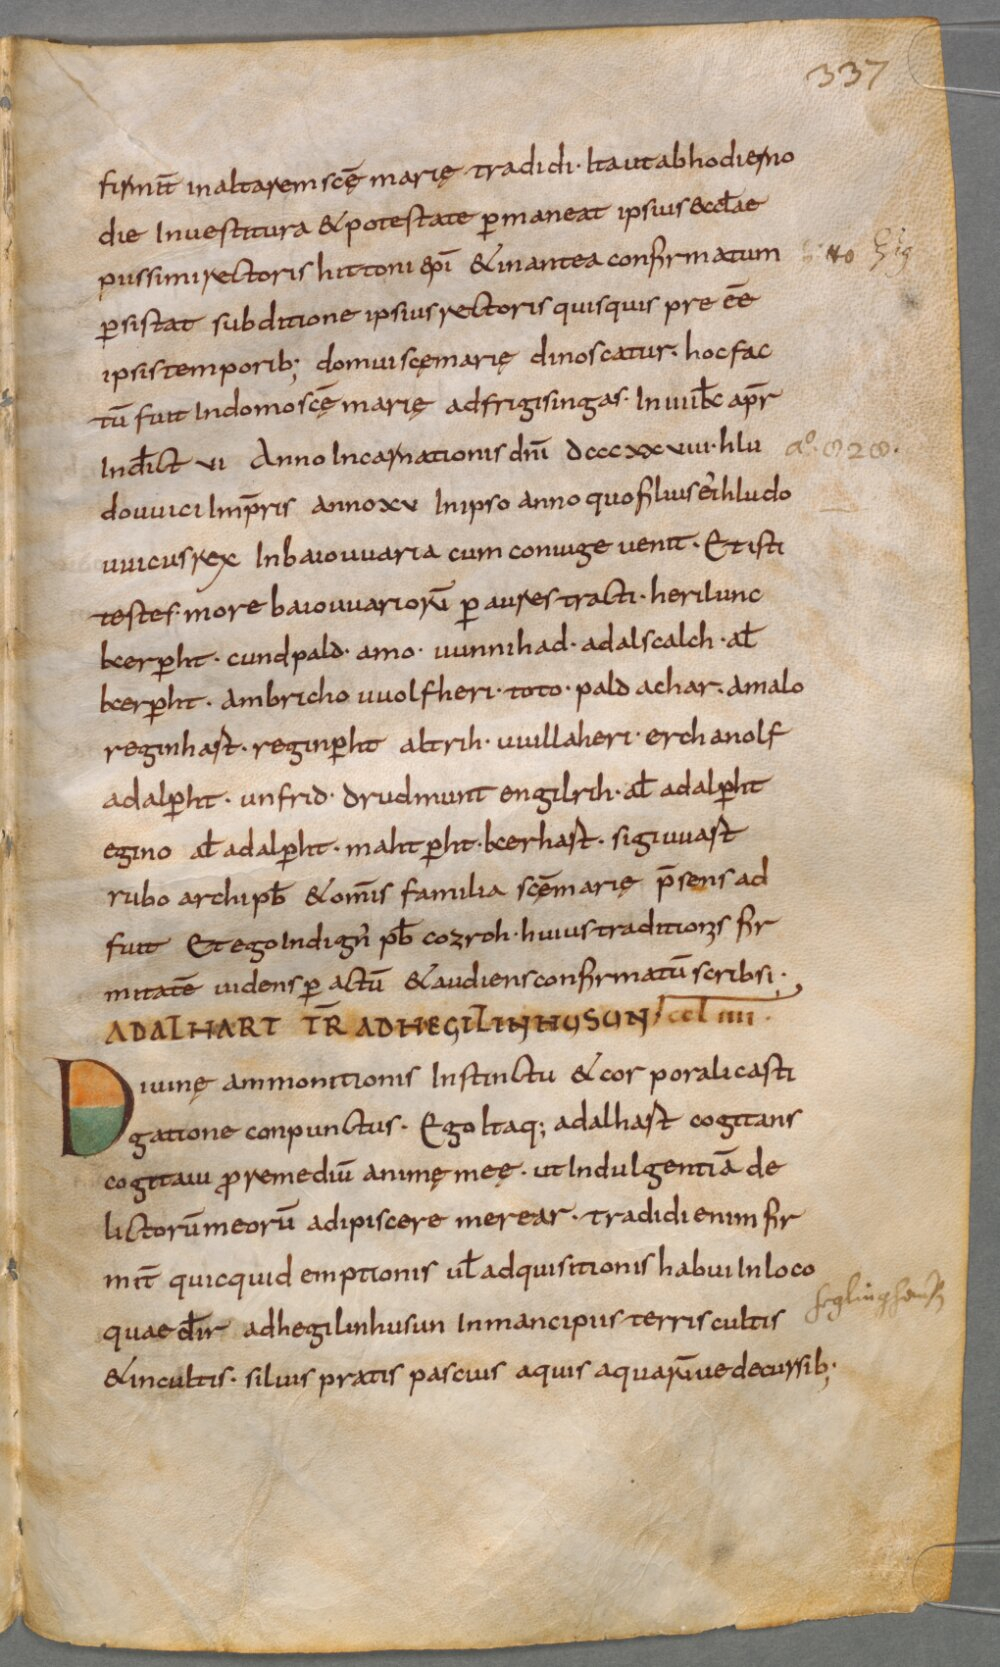 337
firmit̄ in altarem scę̄ marię tradidi · Ita ut ab hodierno
die Inuestitura & potestate ꝑmaneat ipsius eccl̄ae
piissimi rectoris hittoni ep̄i & in antea confirmatum
ꝑsistat sub ditione ipsius rectoris quisquis preēē
ipsis temporib; domui scę marię dinoscatur · hoc fac
tū fuit In domo scę̄ marię ad frigisingas · In uiiii kł apr̄
Indict̄ vi Anno Incarnationis dn̄i dcccxxviii · hlu
douuici Imp̄ris anno xv In ipso anno quo filius ei hludo
uuicus rex In baiouuaria cum coniuge uenit · Et isti
testes · more baiouuariorū ꝑ aures tracti · herilunc
kerꝑht · cundpald · amo · uunnihad · adalscalch · al̄
kerꝑht · ambricho uuolfheri · toto · paldachar · amalo
reginhast · reginꝑht altrih · uuillaheri · erchanolf
adalꝑht · unfrid · drudmunt engilrih · al̄ adalꝑht
egino al̄ adalꝑht · mahtꝑht · kerhast · sigiuuast
rubo archipb̄ & om̄is familia scę̄ marię p̄sens ad
fuit Et ego Indign̄ pb̄ cozroh · huius traditionis fir
mitatē uidens ꝑactū & audiens confirmatū scribsi ·
ADALHART TR̄ AD HEGILINHUSUN ccl iiii ·
Diuinę ammonitionis Instinctu & corporali casti
gatione conpunctus · Ego Itaq; adalhast cogitans
cogitaui ꝓ remediū animę meę · ut Indulgentiā de
lictorū meorū adipiscere merear · tradidi enim fir
mit̄ quicquid emptionis ul̄ adquisitionis habui In loco
quae dr̄ ad hegilinhusun In mancipiis terris cultis
& incultis · siluis pratis pascuis aquis aquarūue decursib;